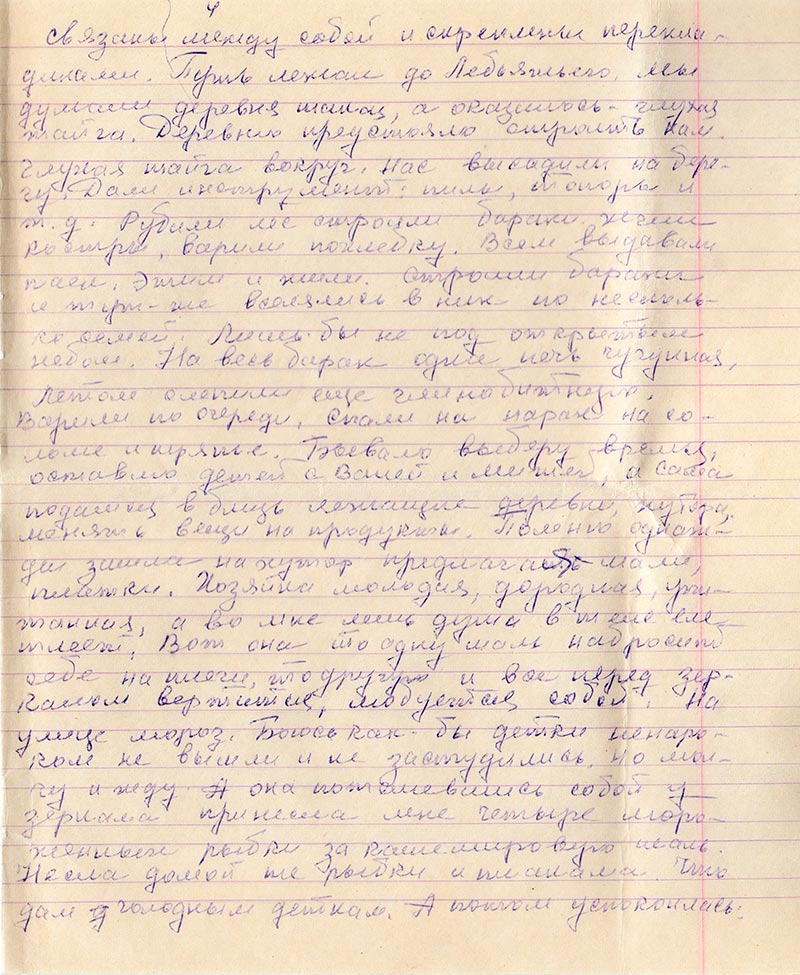 4
связаны между собой и скреплены перекла-
динами. Путь лежал до Лебяжьего, мы
думали деревня такая, а оказалось - глухая
тайга. Деревню предстояло строить нам.
Глухая тайга вокруг. Нас высадили на бере-
гу. Дали инструмент: пилы, топоры и
т.д. Рубили лес строили бараки. жгли
костры, варили похлебку. Всем выдавали
паек. Этим и жили. Строили бараки
и тут-же вселялись в них по несколь-
ко семей. Лишь-бы не под открытым
небом. На весь барак одна печь чугунная,
летом слепили еще глинобитную.
Варили по очереди, спали на нарах на со-
ломе и тряпье. Бывало выберу время,
оставлю детей с Ваней и Митей, а сама
подамся в близь лежащие деревни, хутора,
менять вещи на продукты. Помню однаж-
ды зашла на хутор предлагать шали,
платки. Хозяйка молодая, дородная,
а во мне лишь душа в теле еле
тлеет. Вот она то одну шаль набросит
себе на плечи, то другую и все перед зер-
калом вертится, любуется собой. На
улице мороз. Боюсь как-бы детки ненаро-
ком не вышли и не застудились. но мол-
чу и жду. А она собой у
зеркала принесла мне четыре моро-
женных рыбки за кашемировую шаль.
Несла домой те рыбки и плакала. Что
дам я голодным деткам. А потом успокоилась: